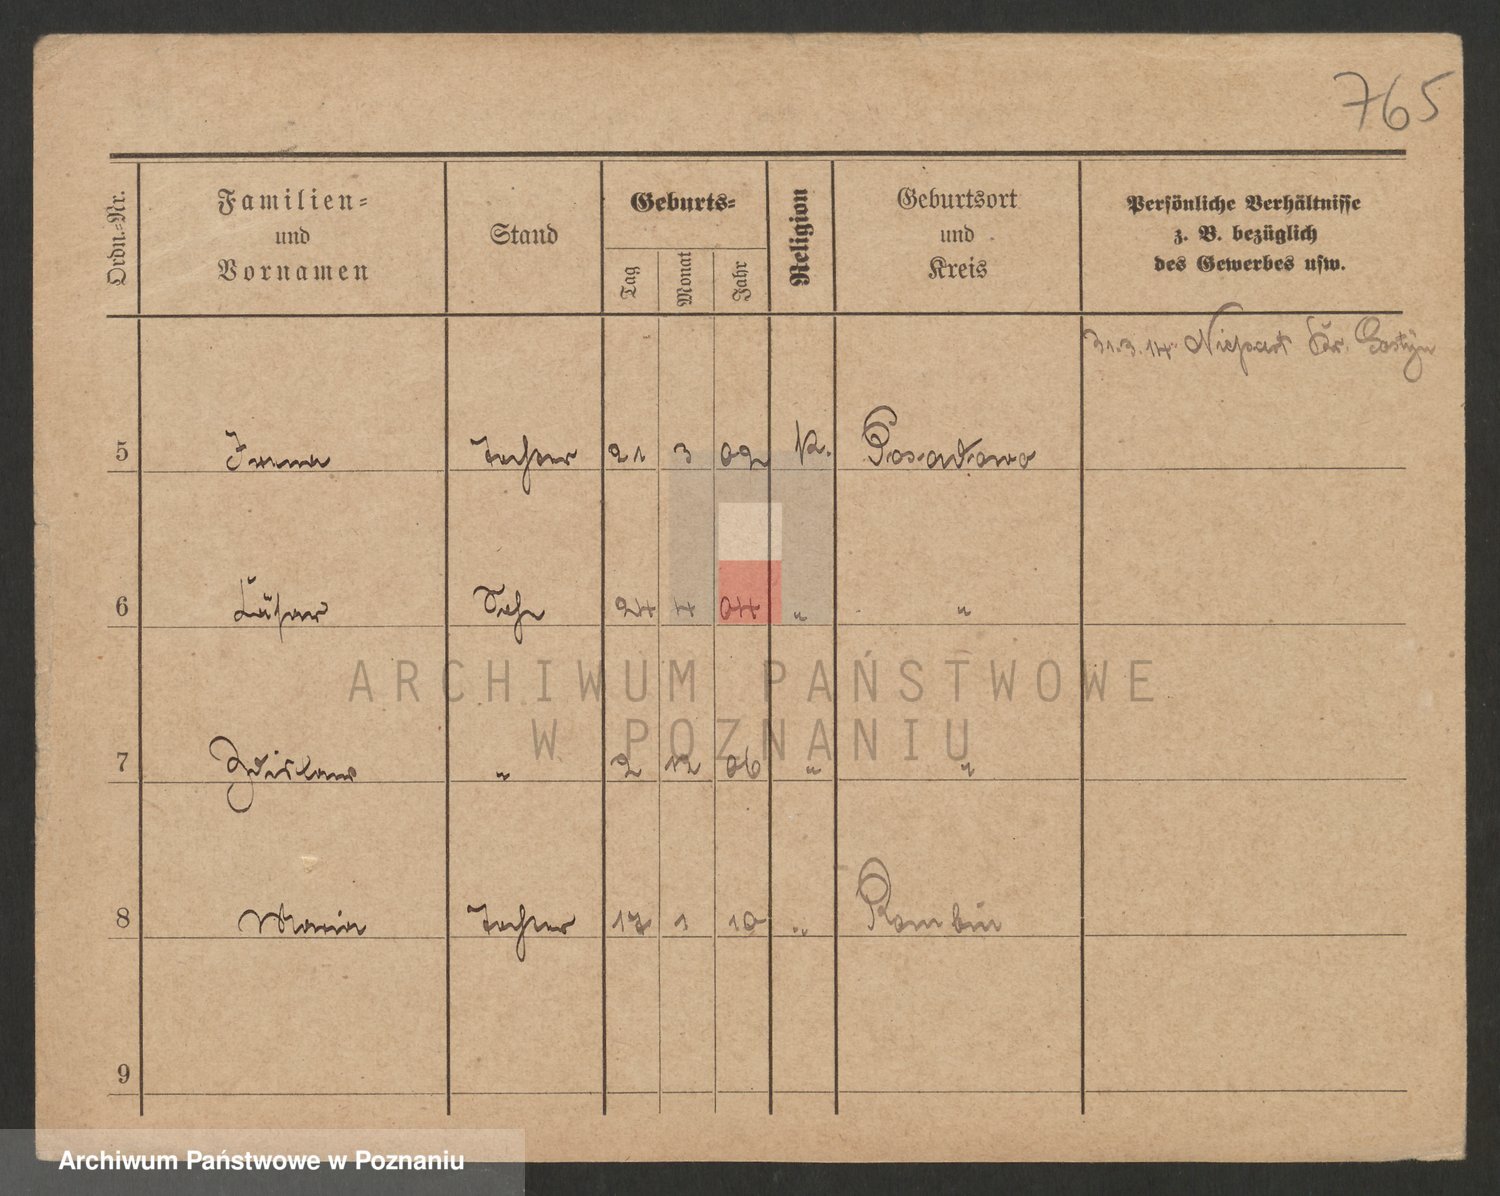 765
Ordn.-Nr.
Familien-
und
Vornamen
Stand
Geburts-
Tag
Monat
Jahr
Religion
Geburtsort
und
Kreis
Persönliche Verhältnisse
z. B. bezüglich
des Gewerbes usw.
31.3.14 Niepart Kr. Gostyn
5 Irena Tochter 21 3 02 K. Posadowo
6 Lutzar Sohn 24 4 04 " "
7 Zdislaw " 2 12 06 " "
8 Maria Tochter 17 1 10 " Rombin
9
ARCHIWUM PAŃSTWOWE
W POZNANIU
Archiwum Państwowe w Poznaniu